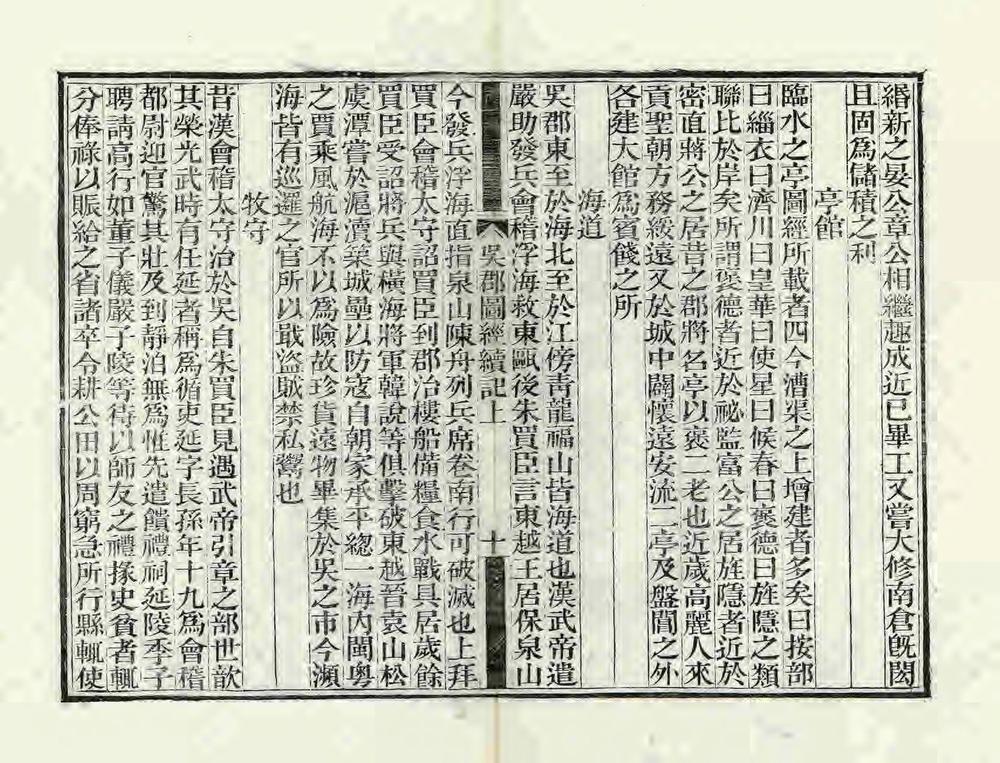 緡新之晏公章公相繼趣成近已畢工又嘗大修南倉旣閎
且固爲儲積之利
亭館
臨水之亭圖經所載者四今漕渠之上增建者多矣曰按部
曰緇衣曰濟川曰皇華曰使星曰候春曰褒德曰旌隱之類
聯比於岸矣所謂褒德者近於祕監富公之居旌隱者近於
密直蔣公之居昔之郡將名亭以褒二老也近歲高麗人來
貢聖朝方務綏遠又於城中闢懷遠安流二亭及盤閶之外
各建大館爲賓餞之所
海道
吳郡東至於海北至於江傍靑龍福山皆海道也漢武帝遣
嚴助發兵會稽浮海救東甌後朱買臣言東越王居保泉山
吳郡圖經續記上
十
今發兵浮海直指泉山陳舟列兵席卷南行可破滅也上拜
買臣會稽太守詔買臣到郡治樓船備糧食水戰具居歲餘
買臣受詔將兵與橫海將軍韓說等俱擊破東越晉袁山松
虞潭嘗於滬瀆築城壘以防寇自朝家承平總一海內閩粤
之賈乘風航海不以爲險故珍貨遠物畢集於吳之市今瀕
海皆有巡邏之官所以戢盜賊禁私鬻也
牧守
昔漢會稽太守治於吳自朱買臣見遇武帝引章之部世歆
其榮光武時有任延者稱爲循吏延字長孫年十九爲會稽
都尉迎官驚其壯及到靜泊無爲惟先遣饋禮祠延陵季子
聘請高行如董子儀嚴子陵等待以師友之禮掾史貧者輒
分俸祿以賑給之省諸卒令耕公田以周窮急所行縣輒使